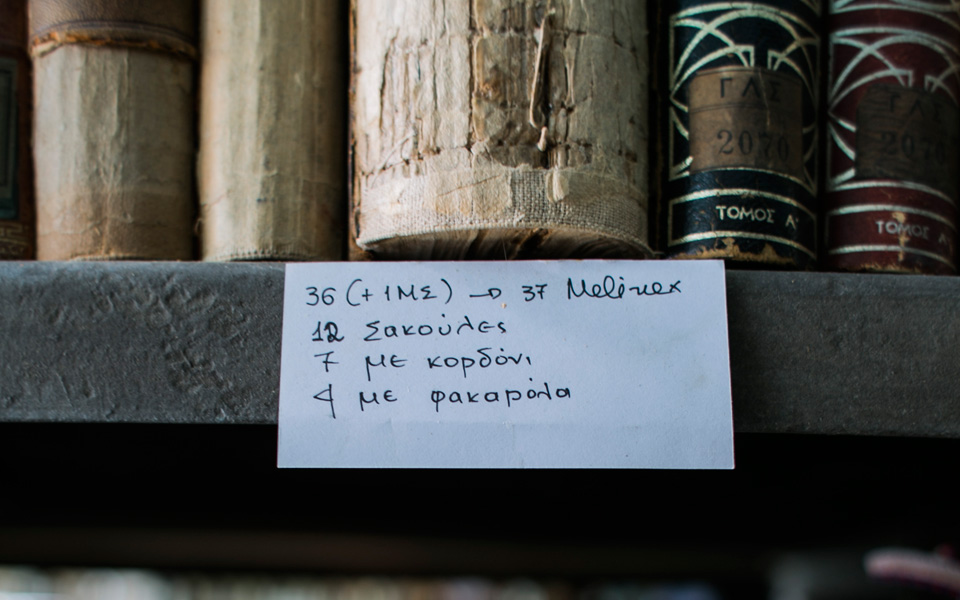 ΓΛΣ
2070
ΤΟΜΟΣ Α'
ΓΛΣ
2070
ΤΟΜΟΣ Α'
36 (+ 1ΜΣ) → 37 Melinex
12 Σακούλες
7 με κορδόνι
4 με φακαρόλα